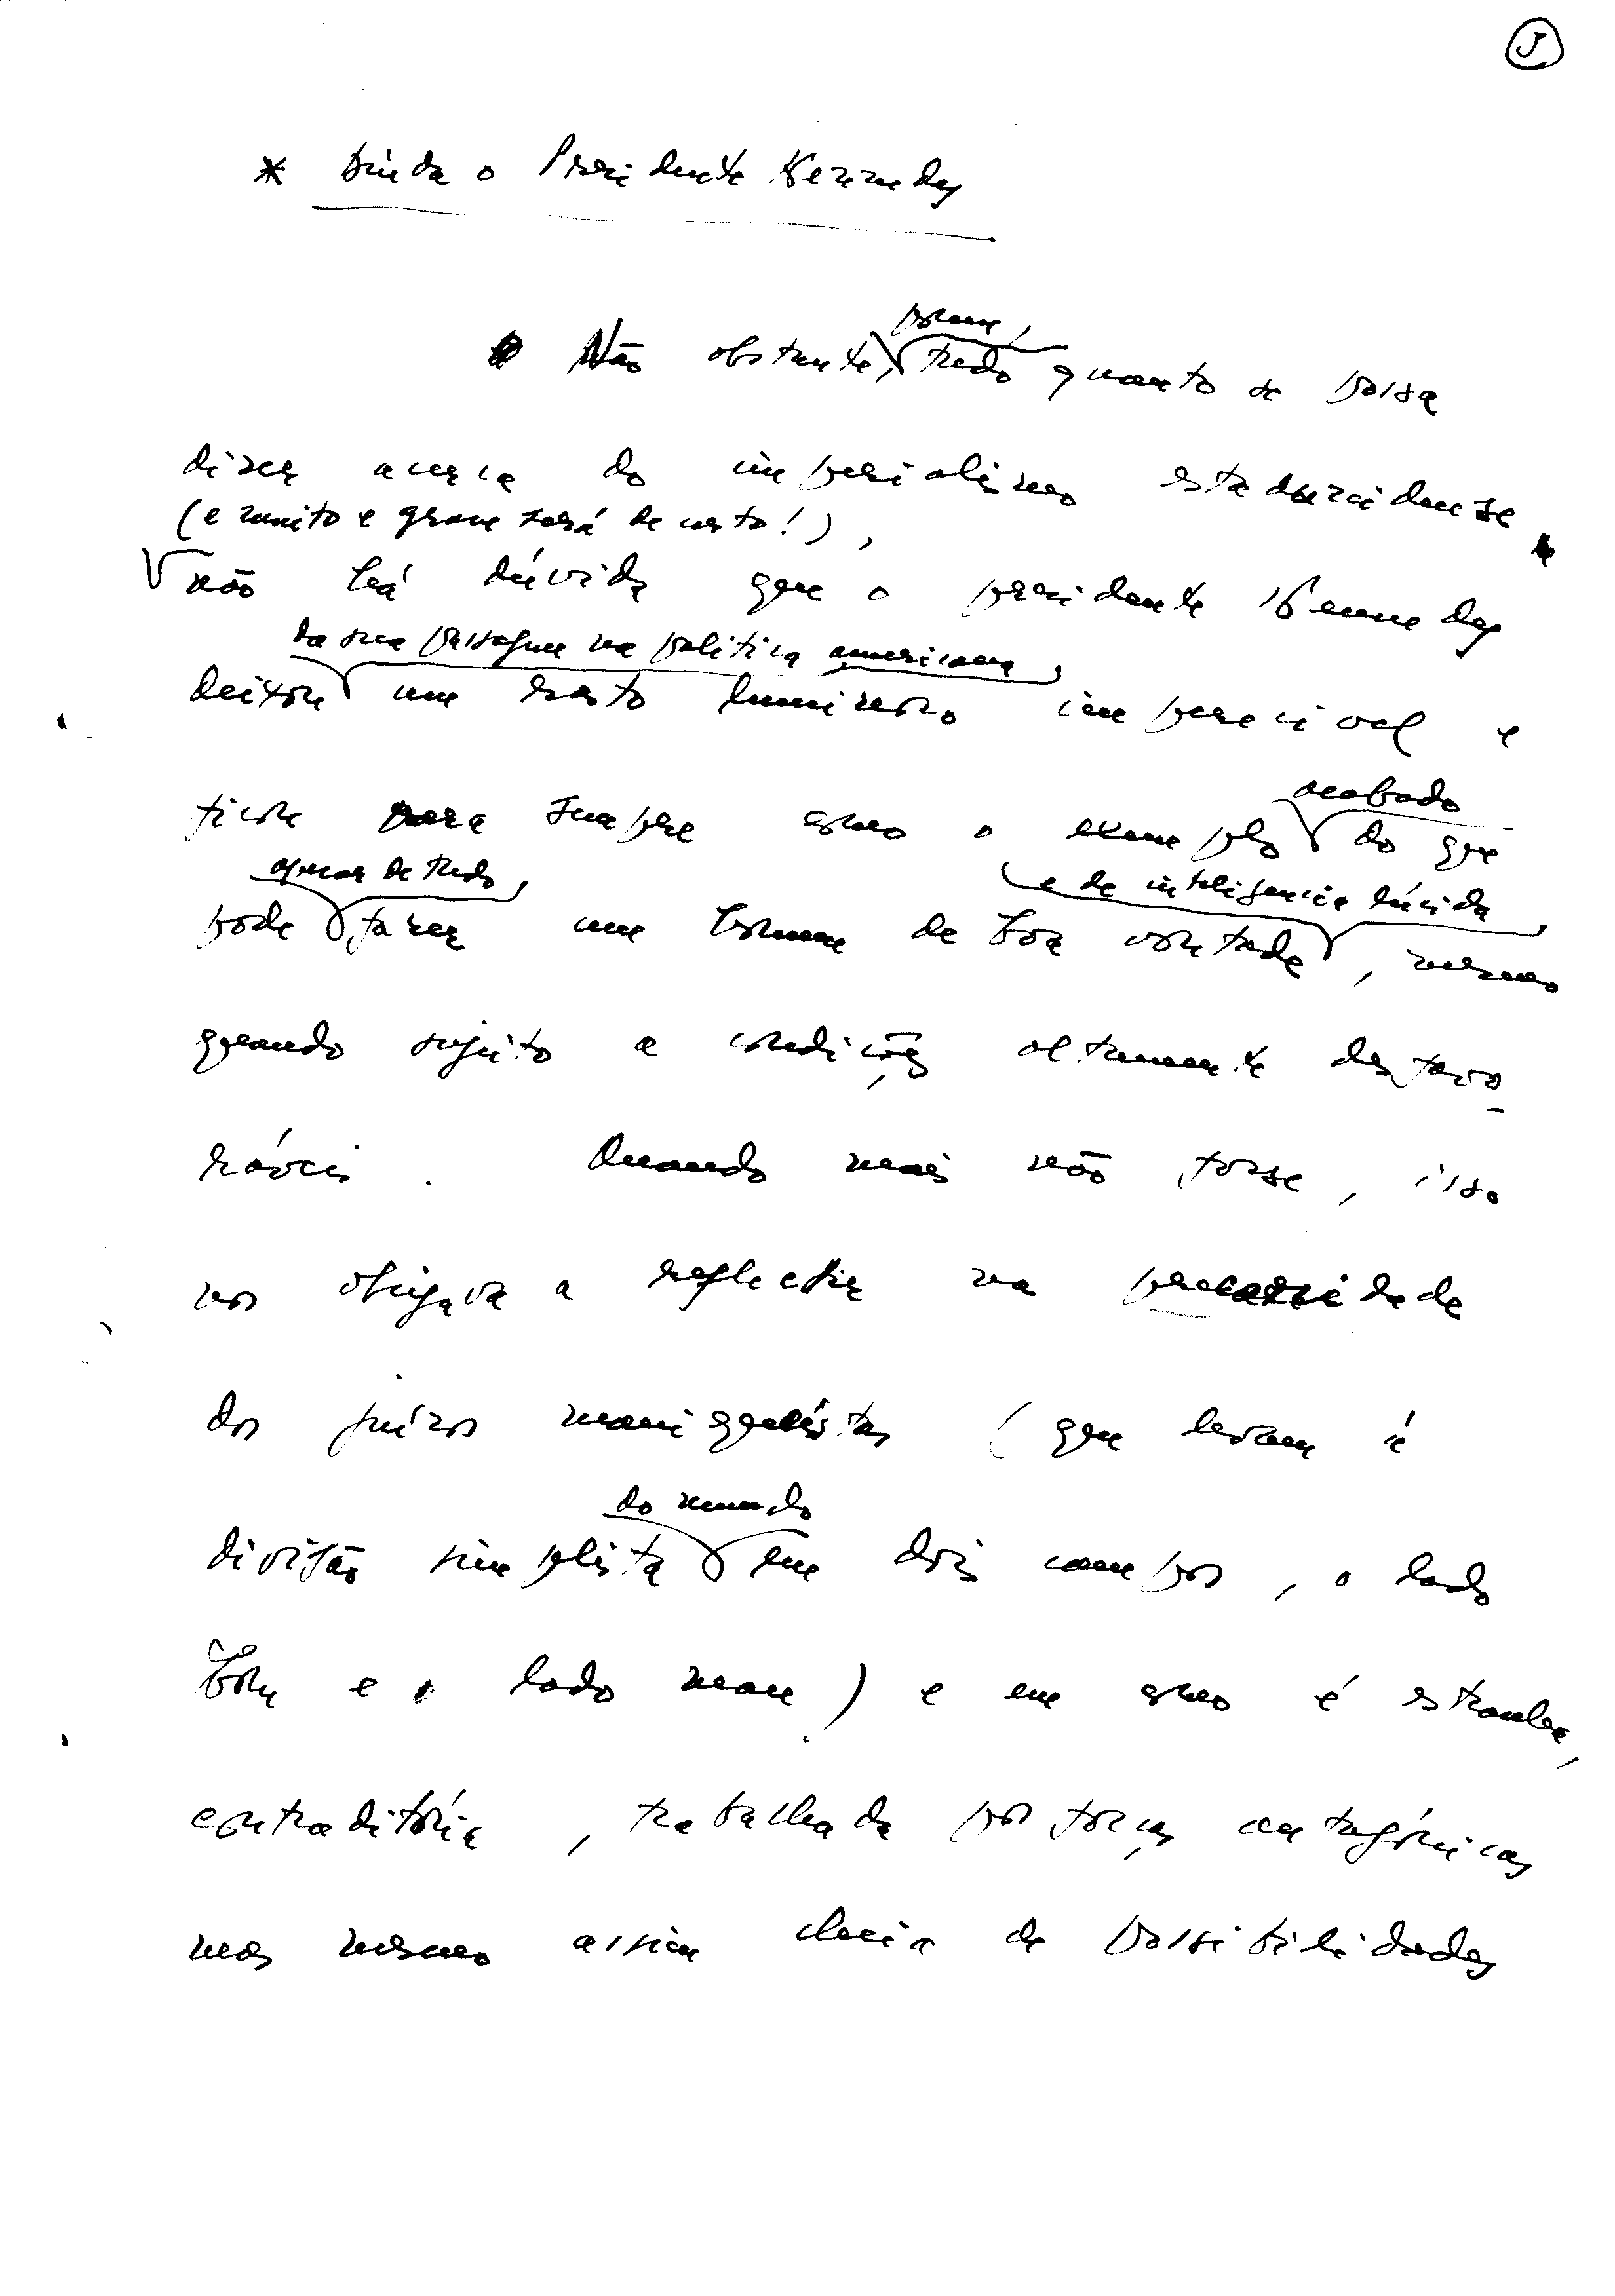 J
* Ainda o Presidente Kennedy
porém,
Não obstante, tudo quanto se possa
dizer acerca do imperialismo estadunidense
(e muito e grave será de certo!),
não há dúvida que o presidente Kennedy
da sua passagem na política americana,
deixou um rasto luminoso imperecível e
acabado
ficou para sempre como o exemplo do que
apesar de tudo, e de inteligência lúcida,
pode fazer um homem de boa vontade, mesmo
quando sujeito a condições altamente desfavo-
ráveis. Quando mais não fosse, isso
nos obrigava a reflectir na precaridade
dos juízos maniqueístas (que levam à
do mundo
divisão simplista em dois campos, o lado
bom e o lado mau) e em como é estranha,
contraditória, trabalhada por forças antagónicas
mas mesmo assim cheia de possibilidades